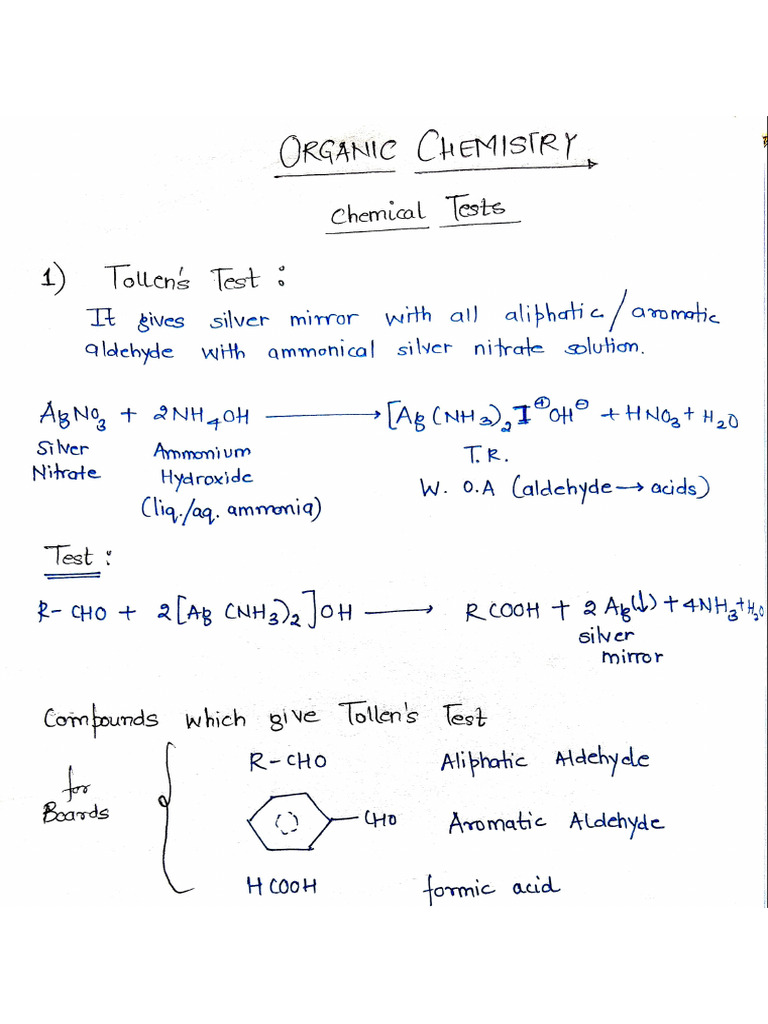 ORGANIC CHEMISTRY
Chemical Tests
1) Tollen's Test :
It gives silver mirror with all aliphatic/aromatic
aldehyde with ammonical silver nitrate solution.
AgNO₃ + 2NH₄OH ⟶ [Ag(NH₃)₂]⊕OH⊖ + HNO₃ + H₂O
Silver Ammonium T.R.
Nitrate Hydroxide W. O.A (aldehyde → acids)
(liq./aq. ammonia)
Test :
R-CHO + 2[Ag(NH₃)₂]OH ⟶ RCOOH + 2Ag(↓) + 4NH₃ + H₂O
silver
mirror
Compounds which give Tollen's Test
R-CHO Aliphatic Aldehyde
for
Boards
CHO Aromatic Aldehyde
HCOOH formic acid